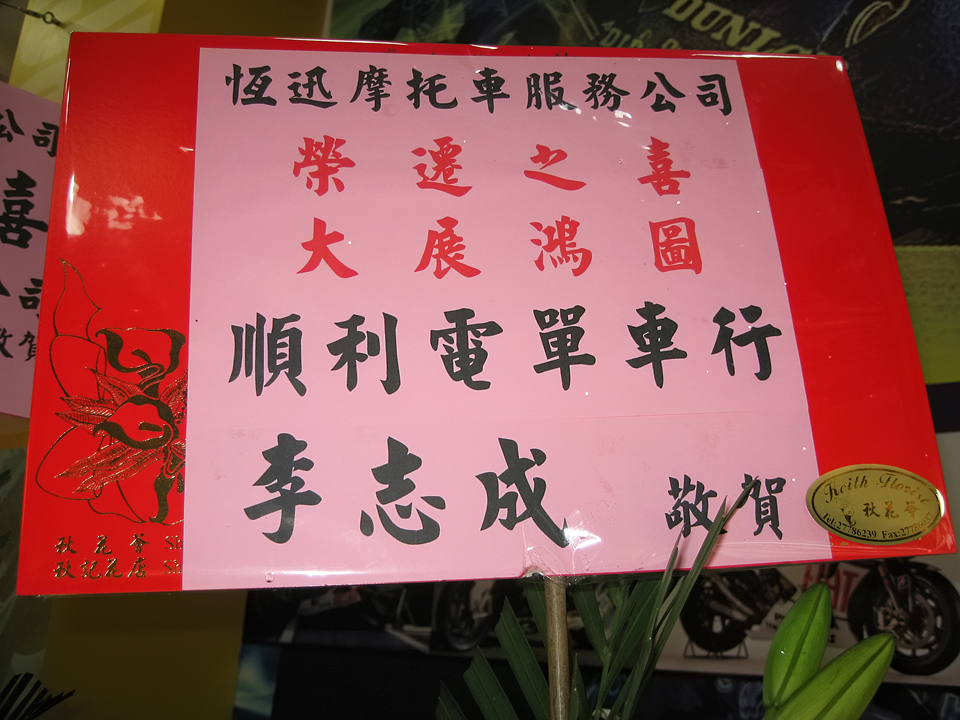 恆迅摩托車服務公司
榮遷之喜
大展鴻圖
順利電單車行
李志成 敬賀
Keith Florist
秋花薈
Tel:27786239 Fax:277860
秋花薈 Sh
秋記花店 Sh
公司
喜
公司
敬賀
DUNLO